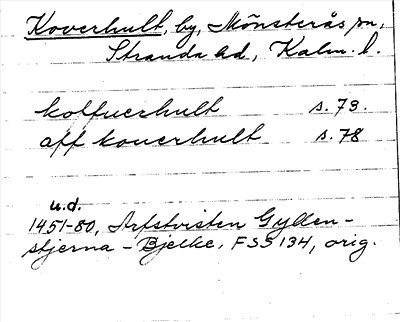 Koverhult, by, Mönsterås sn,
Stranda hd, Kalm. l.
kolfuerhult s. 73.
aff kouerhult s. 78
u.d.
1451-80, Arfstvisten Gyllen-
stjerna - Bjelke, FSS 134, orig.